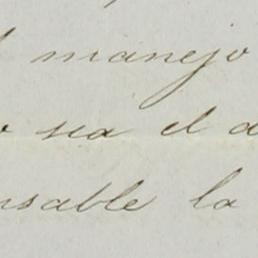 l manejo
o sea el d
nsable la